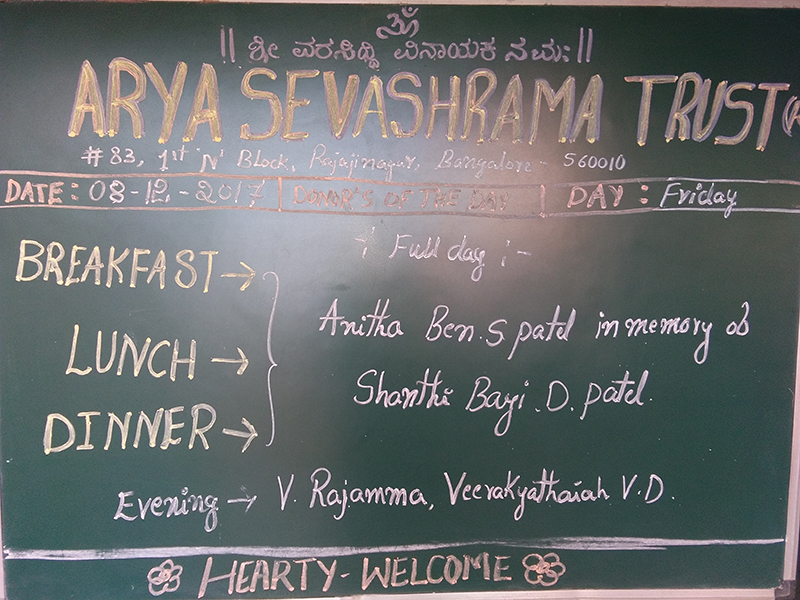 ॐ
|| ಶ್ರೀ ವರಸಿದ್ಧಿ ವಿನಾಯಕ ನಮಃ ||
ARYA SEVASHRAMA TRUST
# 83, 1st 'N' Block, Rajajinagar, Bangalore - 560010
DATE: 08-12-2017 DONOR'S OF THE DAY DAY: Friday
Full day :-
BREAKFAST →
Anitha Ben. S. patel in memory ob
LUNCH →
Shanthi Bayi. D. patel.
DINNER →
Evening → V. Rajamma, Veerakyathaiah V.D.
HEARTY-WELCOME